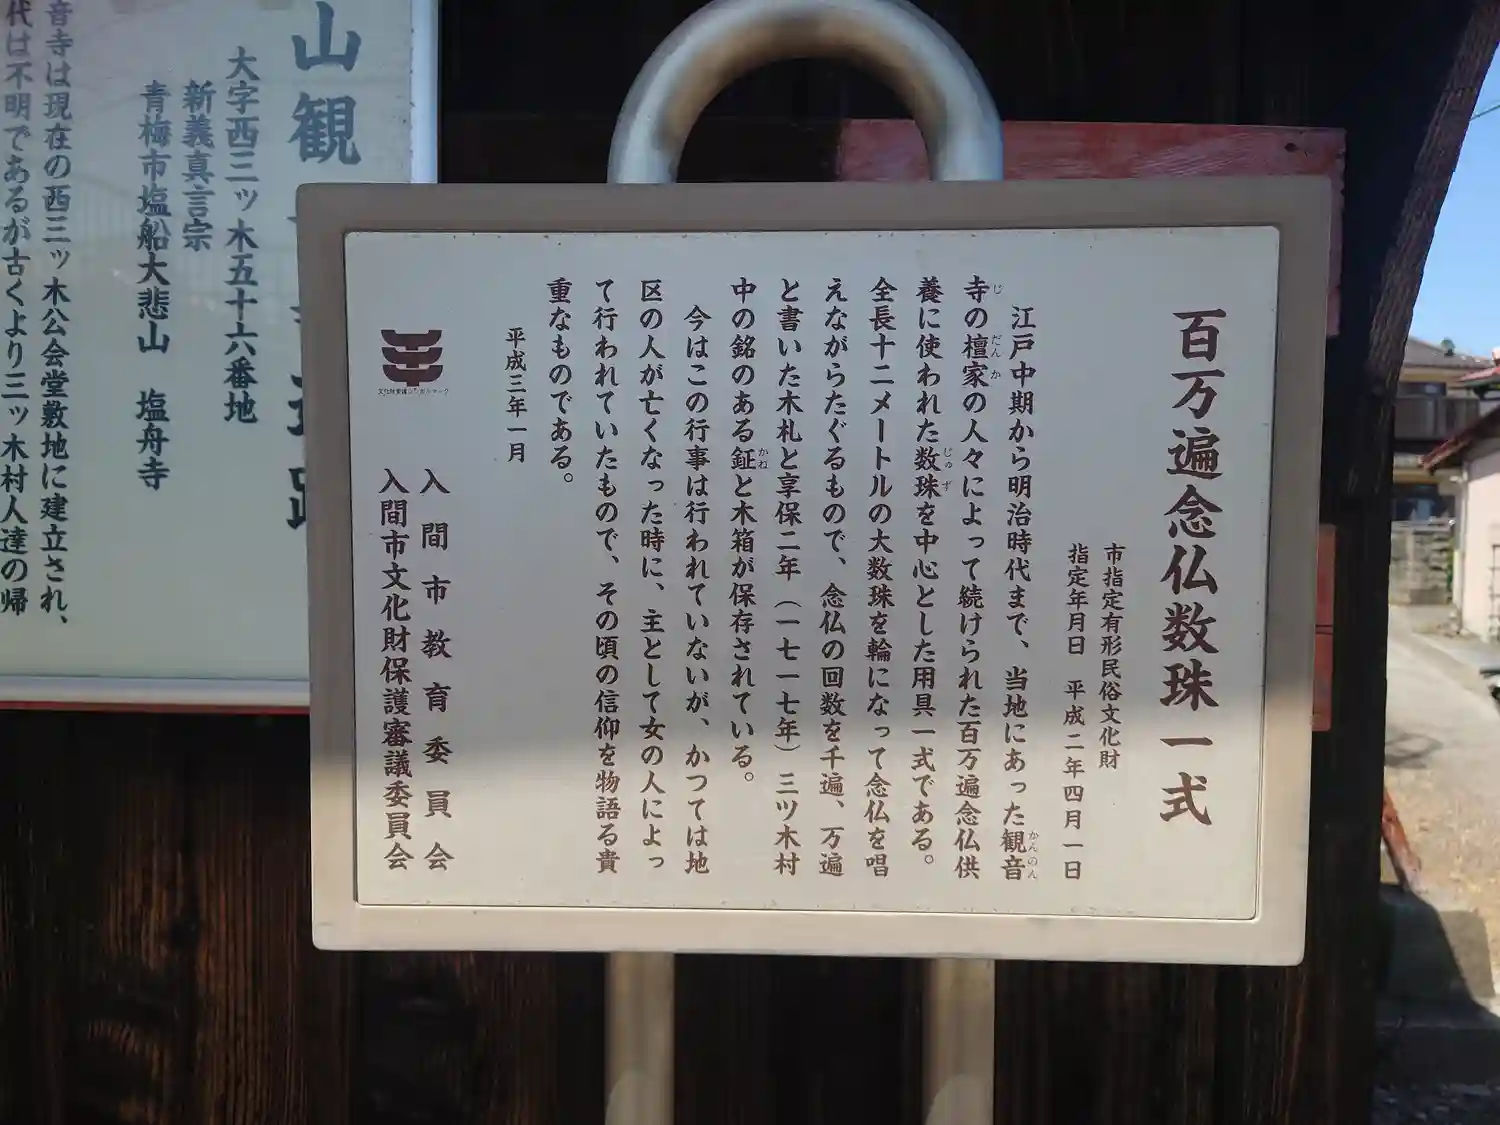 百万遍念仏数珠一式
市指定有形民俗文化財
指定年月日　平成二年四月一日
江戸中期から明治時代まで、当地にあった観音
かんのん
寺の檀家の人々によって続けられた百万遍念仏供
じ だんか
養に使われた数珠を中心とした用具一式である。
じゅず
全長十二メートルの大数珠を輪になって念仏を唱
えながらたぐるもので、念仏の回数を千遍、万遍
と書いた木札と享保二年（一七一七年）三ツ木村
中の銘のある鉦と木箱が保存されている。
かね
今はこの行事は行われていないが、かつては地
区の人が亡くなった時に、主として女の人によっ
て行われていたもので、その頃の信仰を物語る貴
重なものである。
平成三年一月
入間市教育委員会
入間市文化財保護審議委員会
山観
大字西三ツ木五十六番地
新義真言宗
青梅市塩船大悲山　塩舟寺
音寺は現在の西三ッ木公会堂敷地に建立され、
代は不明であるが古くより三ッ木村人達の帰